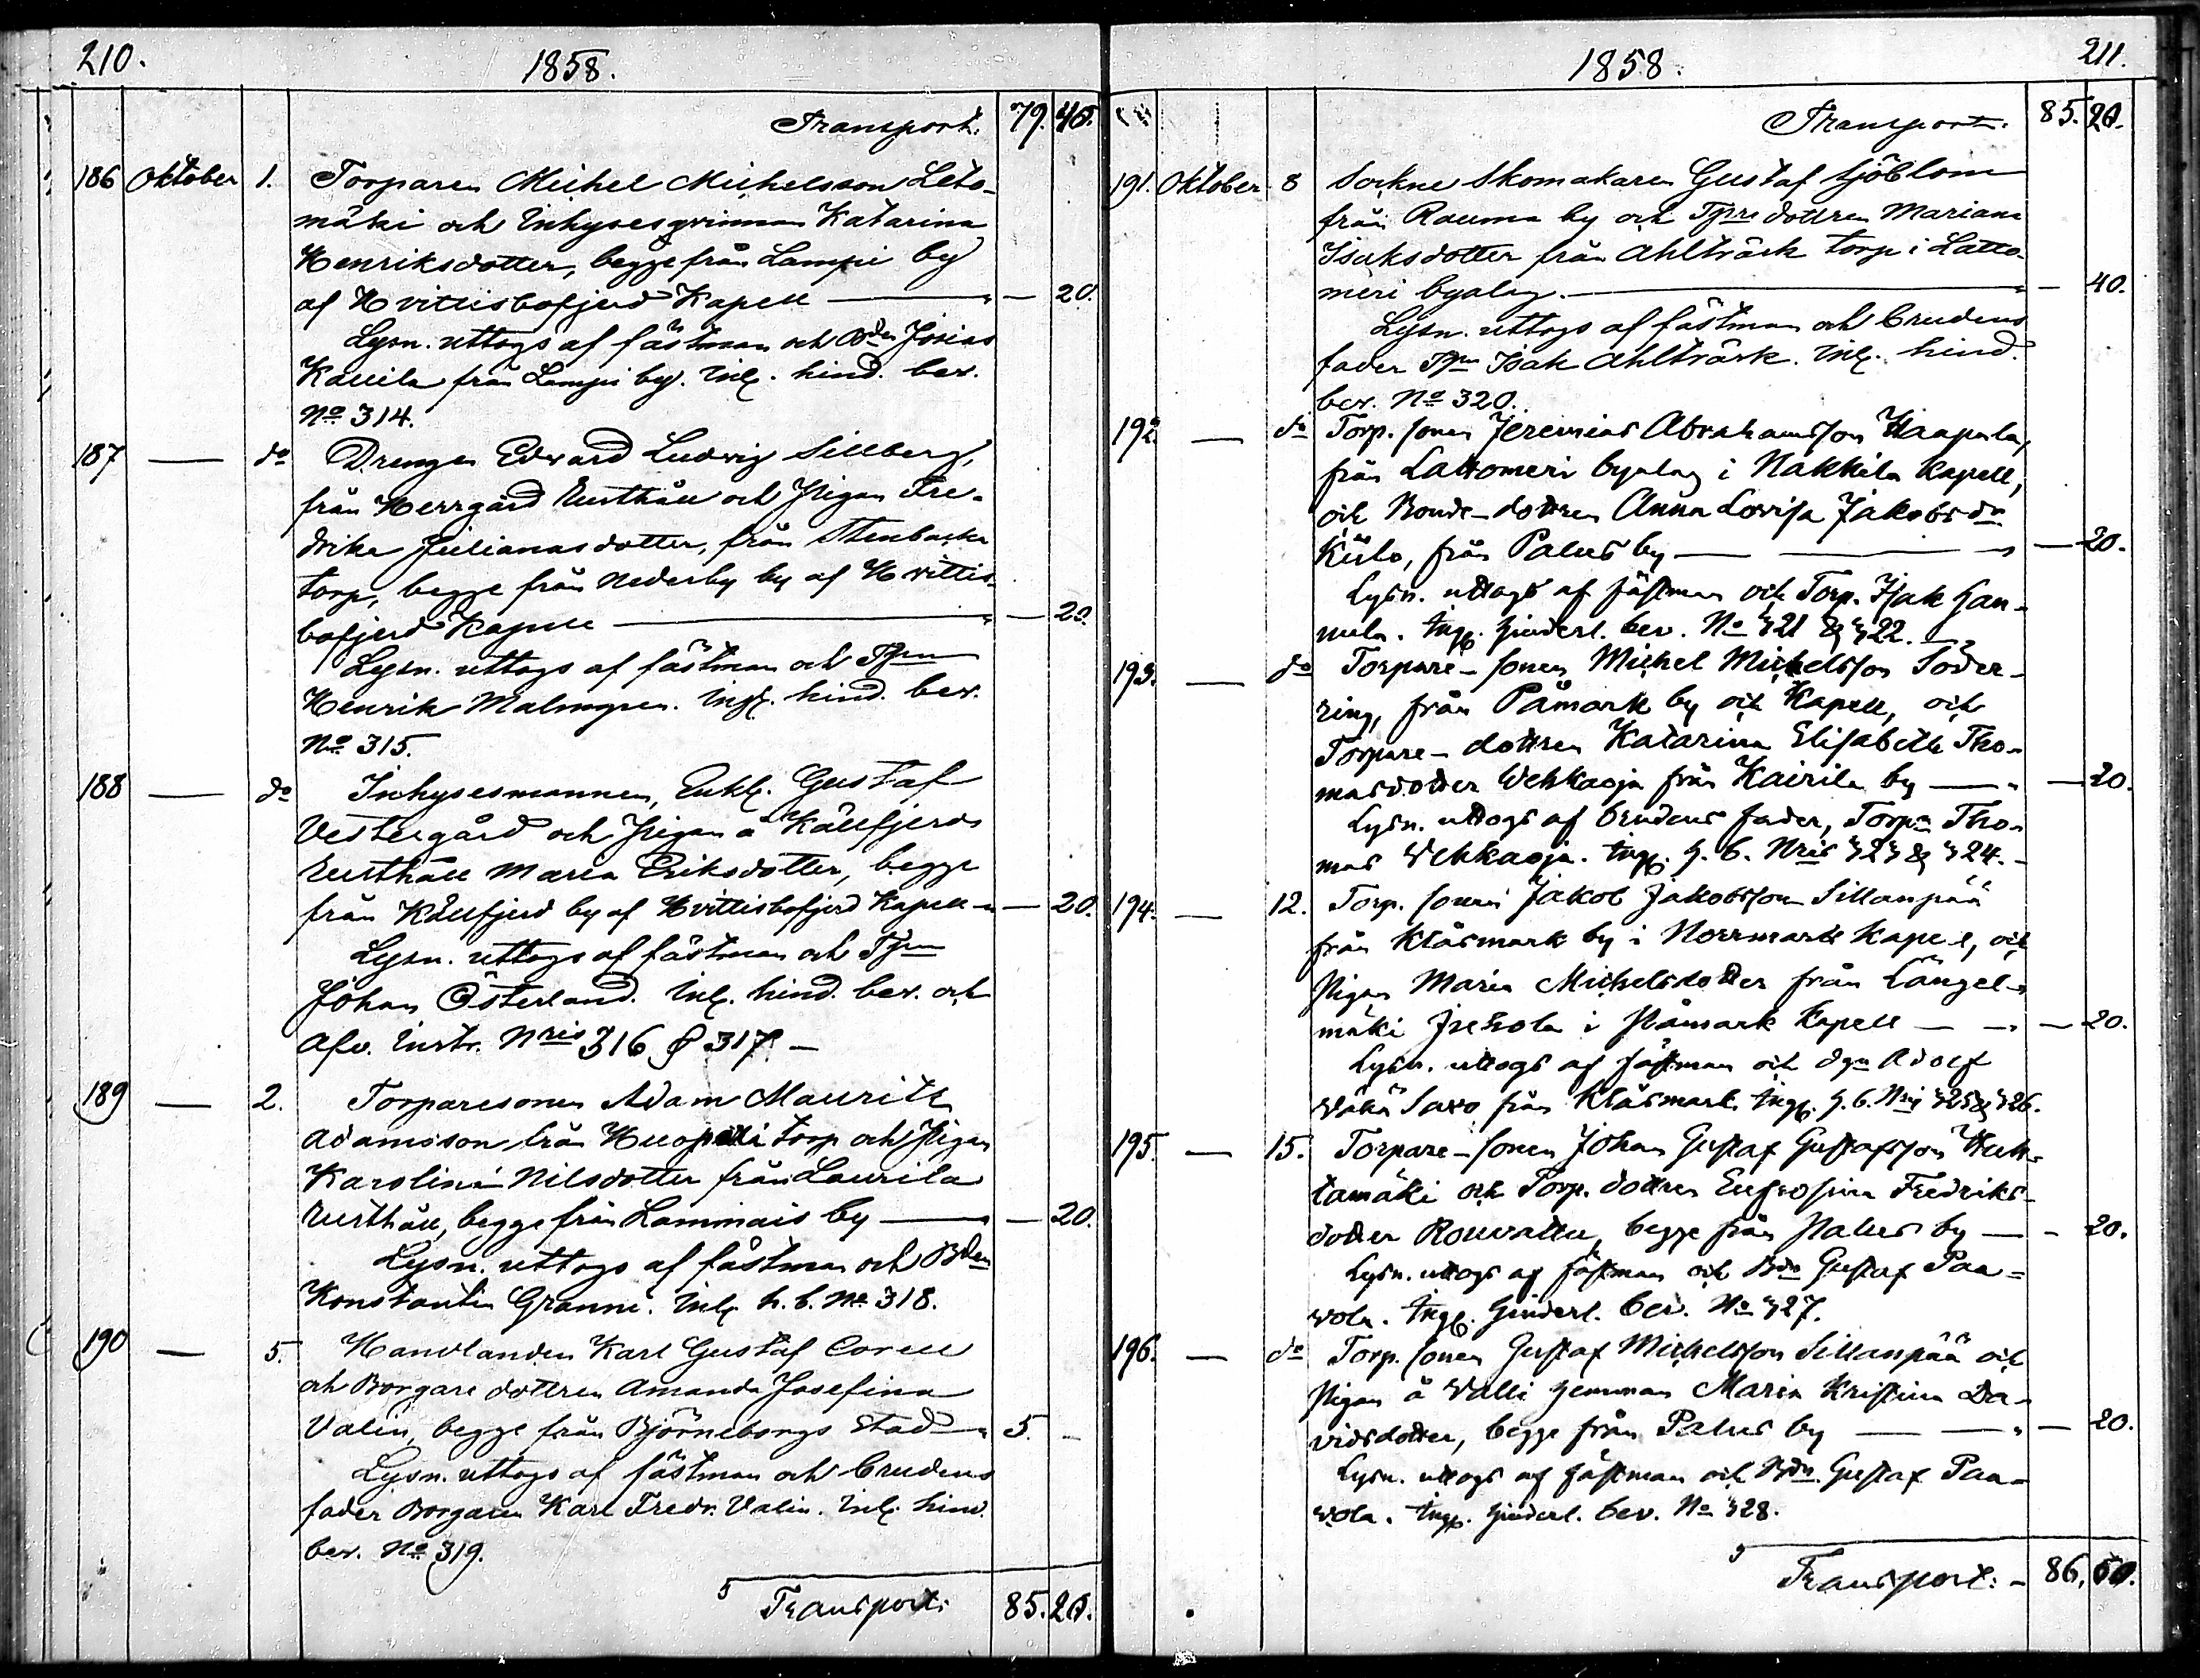 210.
1858.
Transport. 79. 40.
186 Oktober 1. Torparen Michel Michelsson Leto-
mäki och Inhysesqvinnan Katarina
Henriksdotter, begge från Lampi by
af Hvittisbofjerd Kapell — " — 20.
Lysn. uttogs af fästman och Bden Josias
Kauila från Lampi by. Inl. hind. bev.
No 314.
187 — do Drengen Edvard Ludvig Sillberg,
från Herrgård Rusthåll och Pigan Fre-
drika Julianasdotter, från Stenbacka
torp, begge från Nederby by af Hvittis-
bofjerd Kapell — " — 20.
Lysn. uttogs af fästman och Tprn
Henrik Malmgren. Ingf. hind. bev.
No 315.
188 — do Inhysesmannen, Enkl. Gustaf
Vestergård och Pigan å Kållfjerds
Rusthåll Maria Eriksdotter, begge
från Kållfjerd by af Hvittisbofjerd Kapell " — 20.
Lysn. uttogs af fästman och Tprn
Johan Österland. Inl. hind. bev. och
Afv. Instr. Nris 316 & 317 —
189 — 2. Torparesonen Adam Maurits
Adamsson från Huopilli torp och Pigan
Karolina Nilsdotter från Laurila
Rusthåll, begge från Lammais by — " — 20.
Lysn. uttogs af fästman och Bden
Konstantin Granni. Inl. h. b. No 318.
190 — 5. Handlanden Karl Gustaf Corell
och Borgare dottren Amanda Josefina
Valin, begge från Björneborgs Stad — " 5. -
Lysn. uttogs af fästman och brudens
fader Borgaren Karl Fredr. Valin. Inl. hind.
bev. No 319.
Transport. 85. 20.
211.
1858.
Transport. 85. 20.
191. Oktober 8 Sockne Skomakaren Gustaf Sjöblom
från Rauma by och Tpre dottren Mariana
Isaksdotter från Ahlträsk torp i Latto-
meri byalag. — " — 40.
Lysn. uttogs af fästman och brudens
fader Tprn Isak Ahlträsk. Inl. hind.
bev. No 320.
192. — do Torp. sonen Jeremias Abrahamsson Haapala,
från Lattomeri byalag i Nakkila Kapell,
och Bonde-dottren Anna Lovisa Jakobs dr
Kulo, från Palus by — " — 20.
Lysn. uttogs af fästman och Torp. Isak Han-
nula. Ingf. hinderl. bev. No 321 & 322. —
193. — do Torpare-sonen Michel Michelsson Söder-
ring, från Påmark by och Kapell, och
Torpare-dottren Katarina Elisabeth Tho-
masdotter Vehkaoja från Kairila by — " — 20.
Lysn. uttogs af brudens fader, Torpn Tho-
mas Vehkaoja. Ingf. h. b. Nris 323 & 324. —
194. — 12. Torp. sonen Jakob Jakobsson Sillanpää
från Klåsmark by i Norrmark Kapell, och
Pigan Maria Michelsdotter från Längel-
mäki i Påmark Kapell — " — 20.
Lysn. uttogs af fästman och Dgn Adolf
Vähä Saxo från Klåsmark. Ingf. h. b. Nris 325 & 326.
195. — 15. Torpare-sonen Johan Gustaf Gustafsson Huh-
tamäki och Torp. dottren Eufrosina Fredriks-
dotter Rouvattu, begge från Palus by — - 20.
Lysn. uttogs af fästman och Bdn Gustaf Paa-
vola. Ingf. hinderl. bev. No 327.
196. — do Torp. sonen Gustaf Michelsson Sillanpää och
Pigan å Valli hemman Maria Kristina Da-
vidsdotter, begge från Palus by — " — 20.
Lysn. uttogs af fästman och Bdn Gustaf Paa-
vola. Ingf. hinderl. bev. No 328.
Transport. - 86. 60.